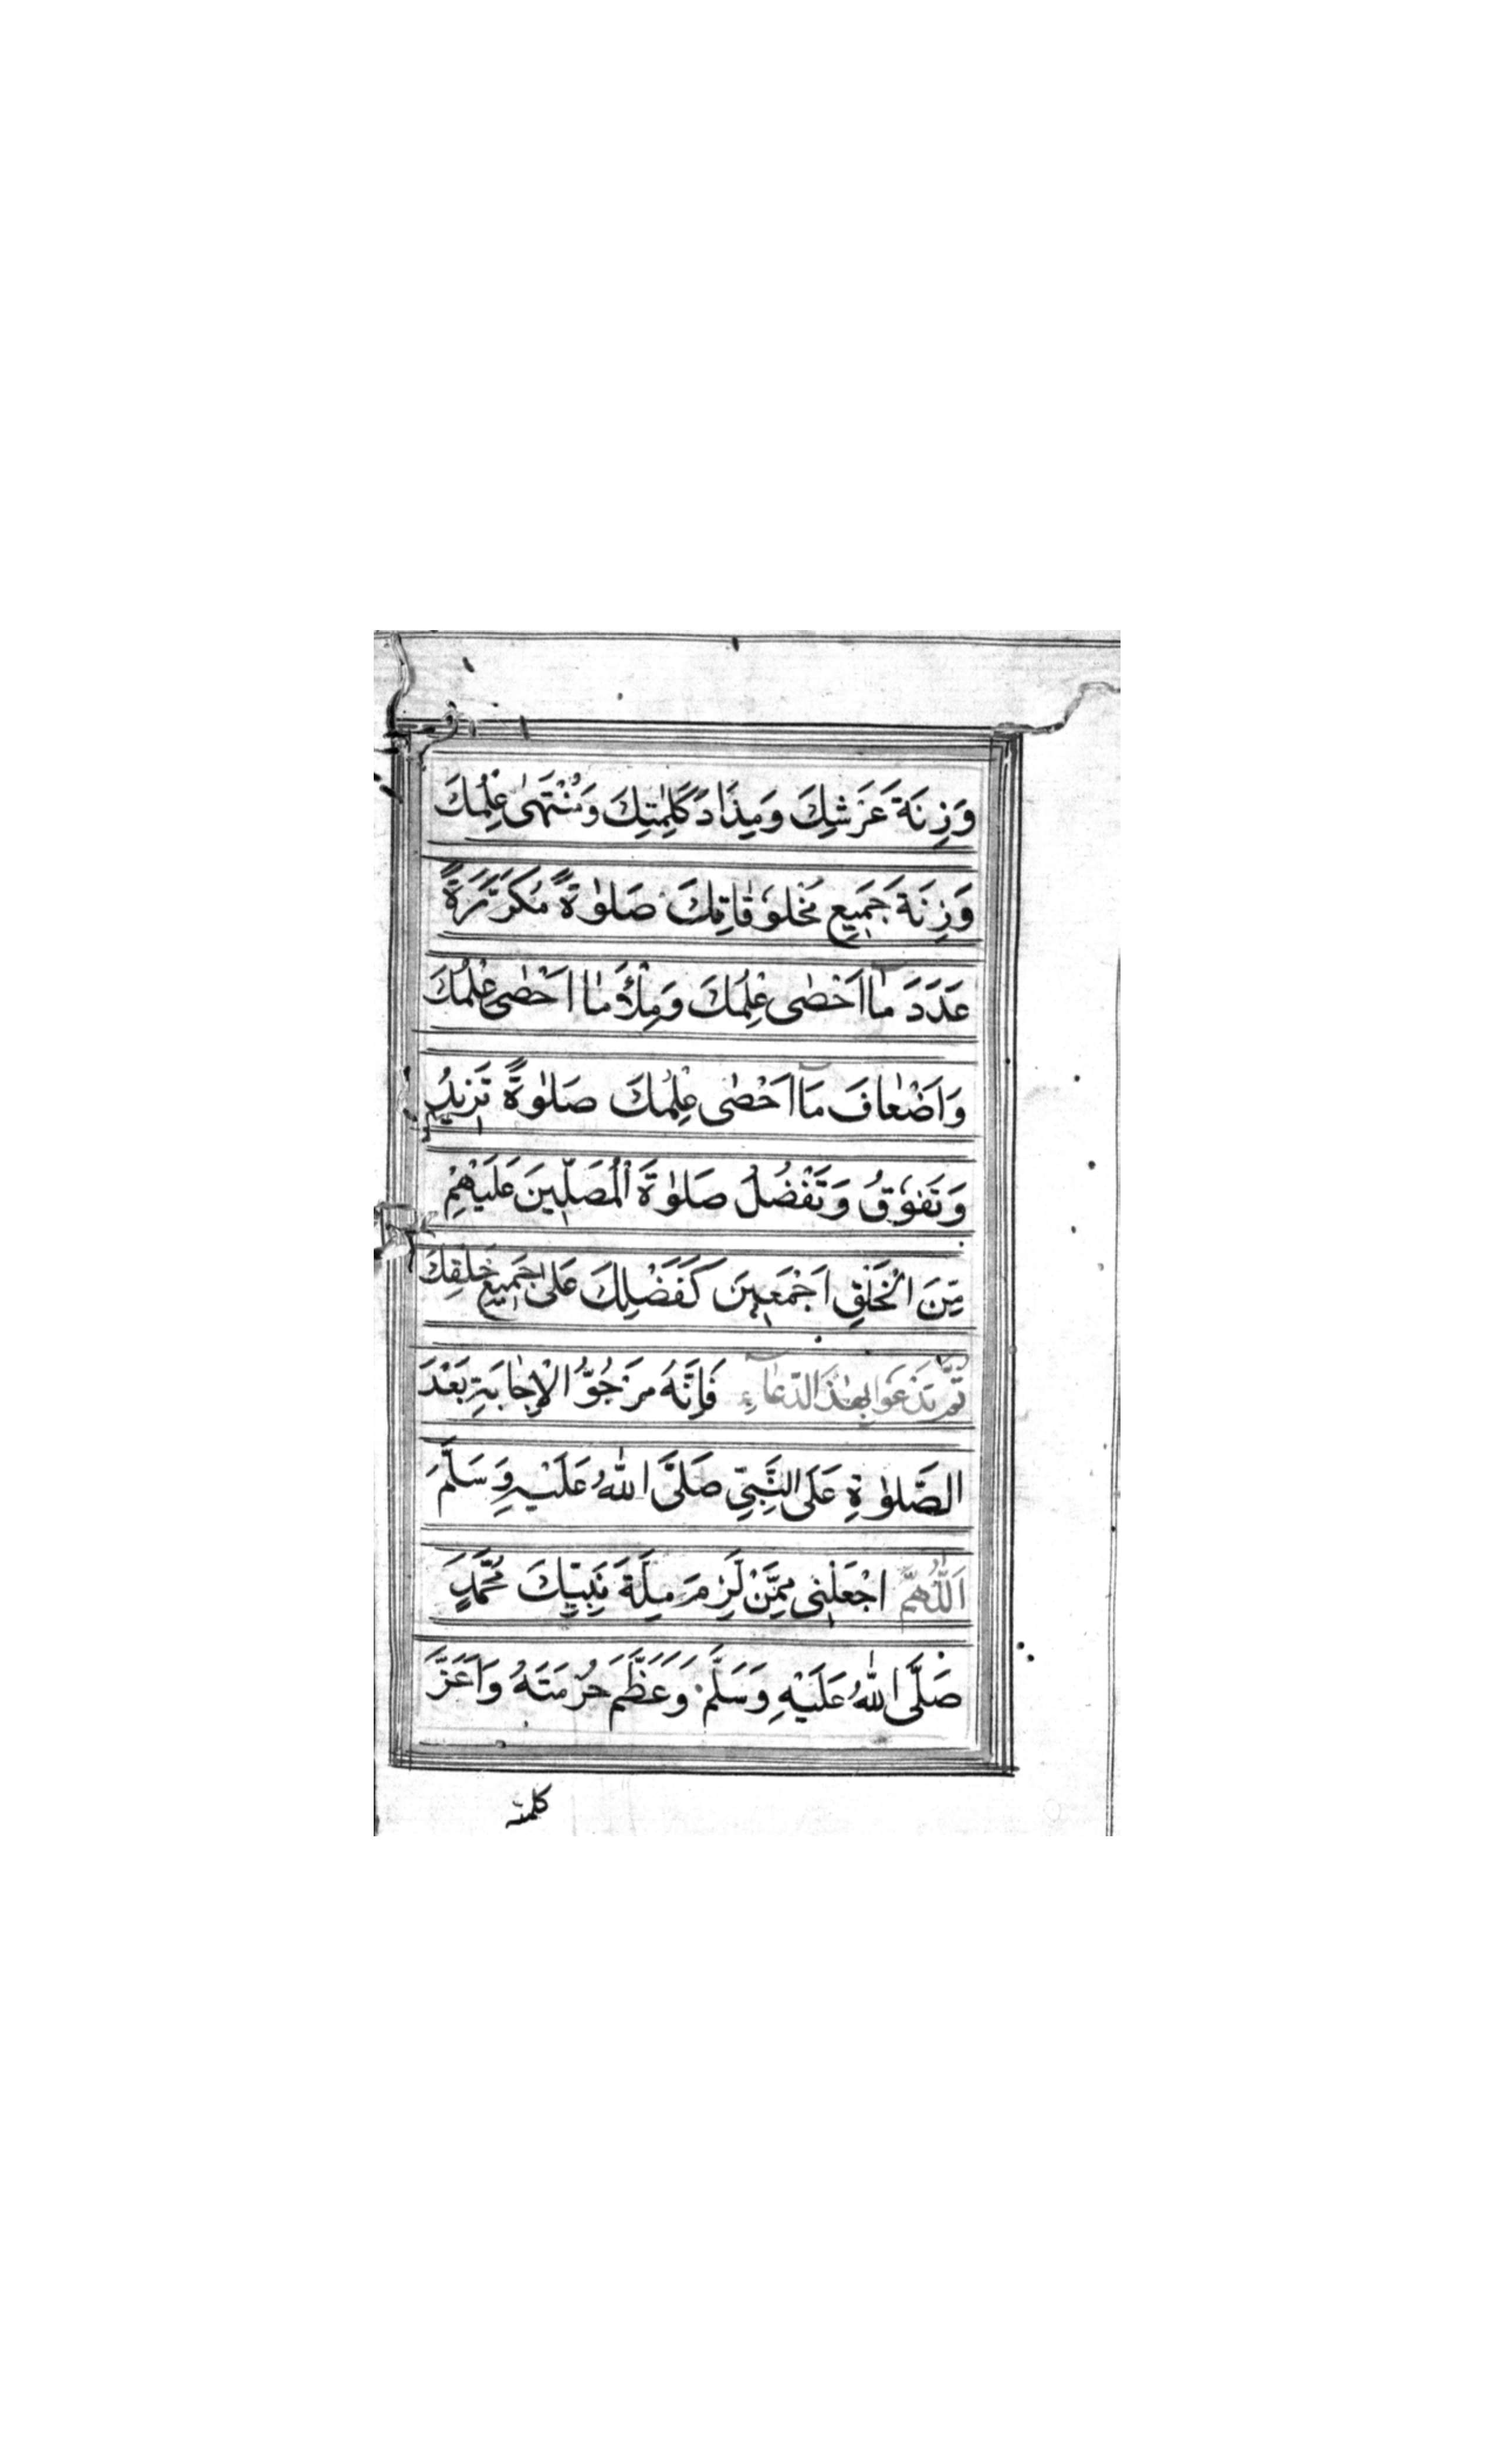 وَزِنَةَ عَرْشِكَ وَمِدَادَ كَلِمٰتِكَ وَمُنْتَهٰى عِلْمِكَ
وَزِنَةَ جَمِيعِ مَخْلُوقَاتِكَ صَلٰوةً مُكَرَّرَةً
عَدَدَ مَا اَحْصٰى عِلْمُكَ وَمِلْأَ مَا اَحْصٰى عِلْمُكَ
وَاَضْعَافَ مَا اَحْصٰى عِلْمُكَ صَلٰوةً تَزِيدُ
وَتَفُوقُ وَتَفْضُلُ صَلٰوةَ الْمُصَلِّينَ عَلَيْهِمْ
مِنَ الْخَلْقِ اَجْمَعِينَ كَفَضْلِكَ عَلٰى جَمِيعِ خَلْقِكَ
ثُمَّ تَدْعُوا بِهٰذَا الدُّعَاءِ فَاِنَّهُ مَرْجُوُّ الْاِجَابَةِ بَعْدَ
الصَّلٰوةِ عَلَى النَّبِيِّ صَلَّى اللّٰهُ عَلَيْهِ وَسَلَّمَ
اَللّٰهُمَّ اجْعَلْنِى مِمَّنْ لَزِمَ مِلَّةَ نَبِيِّكَ مُحَمَّدٍ
صَلَّى اللّٰهُ عَلَيْهِ وَسَلَّمَ وَعَظَّمَ حُرْمَتَهُ وَاَعَزَّ
كلمته